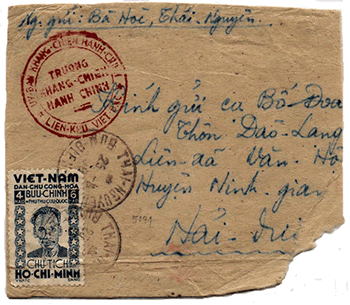 Ng. gửi: Bà Hoè, Thái Nguyên
UỶ BAN KHÁNG-CHIẾN HÀNH-CHÍNH
TRƯỜNG
KHÁNG-CHIẾN
HÀNH CHÍNH
LIÊN-KHU VIỆT
Kính gửi cụ Bố Đoa
Thôn Đào-Lạng
Liên-xã Văn Hộ
Huyện Ninh-giang
Hải-
THAI NGUYEN
BUU-DIEN
VIỆT-NAM
DÂN-CHỦ CỘNG-HÒA
BƯU-CHÍNH
CHỦ TỊCH
HỒ-CHÍ-MINH